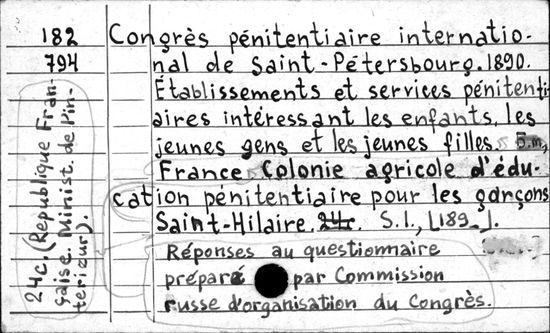 182
794
Congrès pénitentiaire internatio-
nal de Saint-Pétersbourg. 1890.
Établissements et services péniten-
iaires intéressant les enfants, les
jeunes gens et les jeunes filles.
France. Colonie agricole d'édu-
cation pénitentiaire pour les garçons
Saint-Hilaire. 24c. S.l., [189_].
Réponses au questionnaire
préparé par Commission
russe d'organisation du Congrès.
24c. (République Fran-
çaise. Minist. de l'in-
terieur).